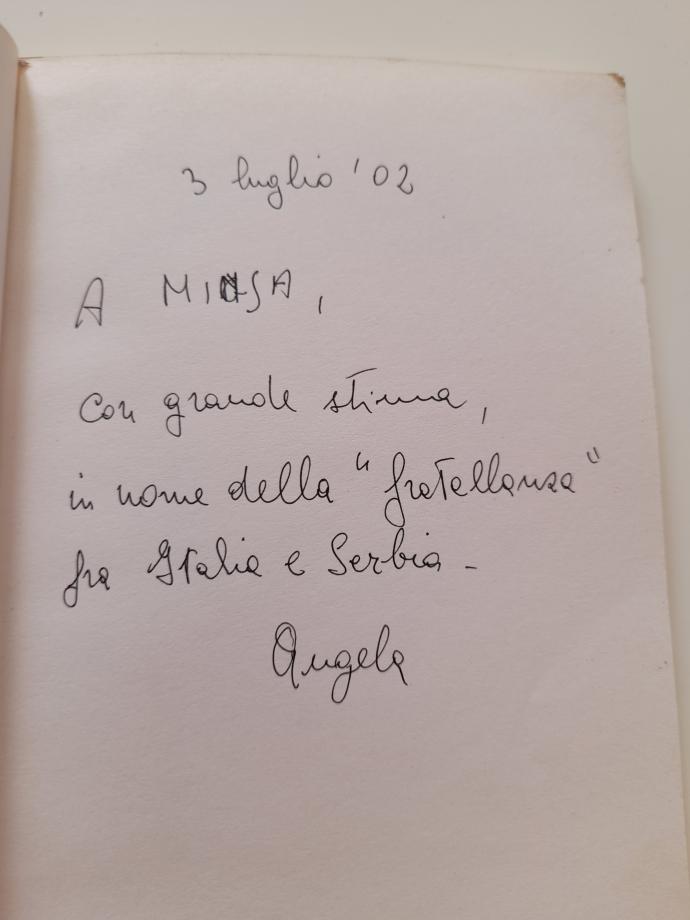 3 luglio '02
A
con grande stima,
in nome della "fratellanza"
fra Italia e Serbia -
Angela